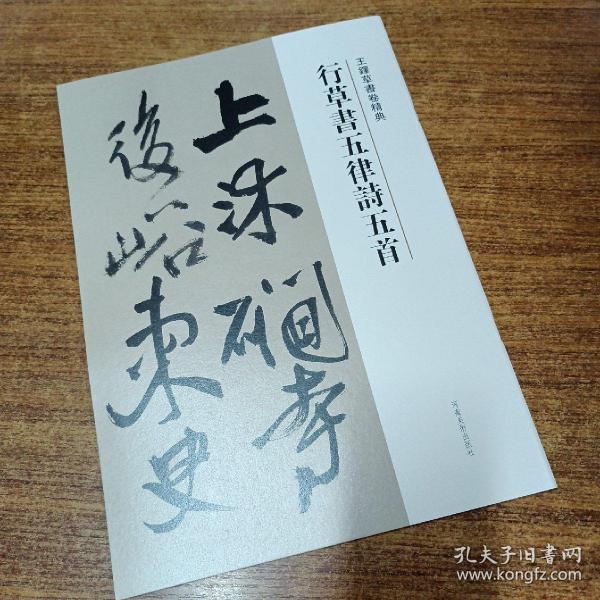 王鐸草書卷精典
行草書五律詩五首
河南美術出版社
上
後
東
史
孔夫子旧書网
www.kongfz.com